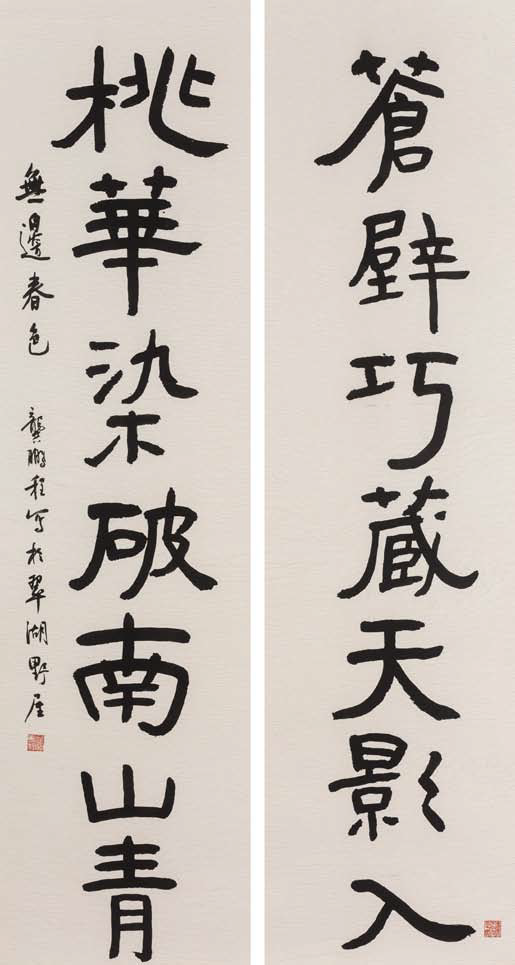 蒼壁巧蔵天影入
桃華染破南山青
無邊春色 龔鵬程写於翠湖野居